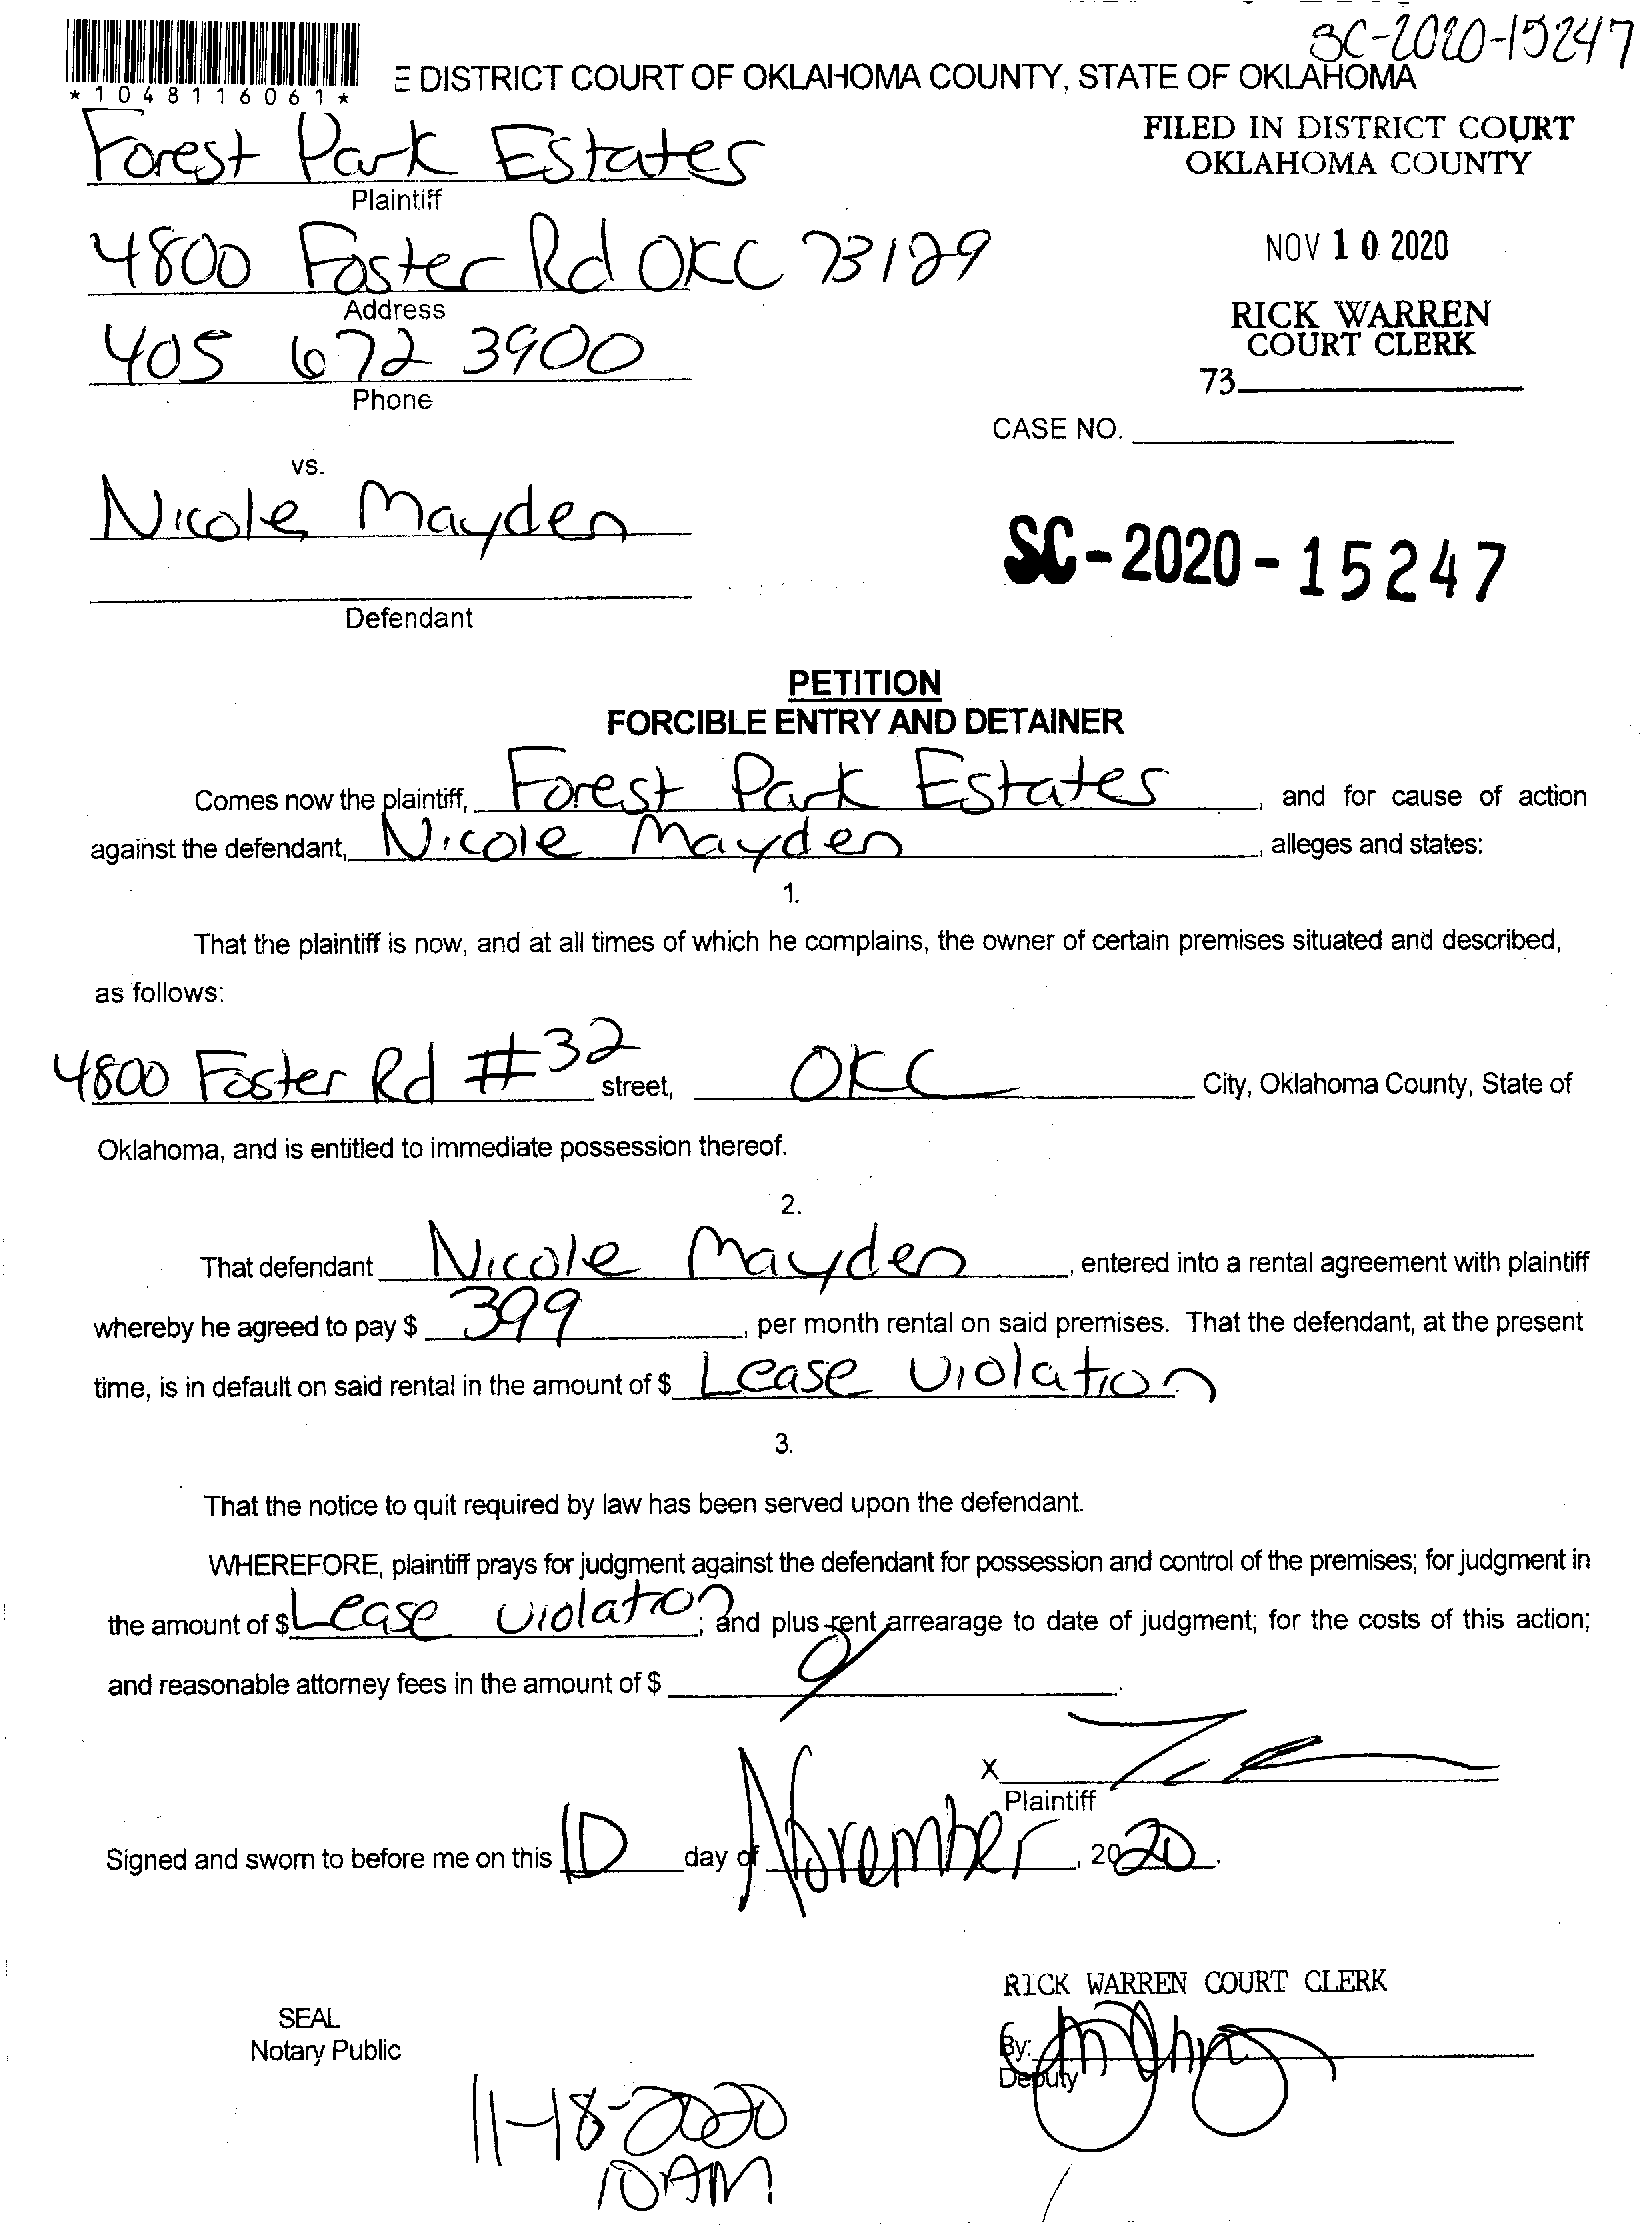 SC-2020-15247
*1048116061*
E DISTRICT COURT OF OKLAHOMA COUNTY, STATE OF OKLAHOMA
Forest Park Estates
Plaintiff
FILED IN DISTRICT COURT
OKLAHOMA COUNTY
4800 Foster Rd OKC 73129
Address
NOV 10 2020
405 672 3900
Phone
RICK WARREN
COURT CLERK
73
CASE NO.
vs.
Nicole Mayden
SC-2020-15247
Defendant
PETITION
FORCIBLE ENTRY AND DETAINER
Comes now the plaintiff, Forest Park Estates, and for cause of action
against the defendant, Nicole Mayden, alleges and states:
1.
That the plaintiff is now, and at all times of which he complains, the owner of certain premises situated and described,
as follows:
4800 Foster Rd #32 street, OKC City, Oklahoma County, State of
Oklahoma, and is entitled to immediate possession thereof.
2.
That defendant Nicole Mayden, entered into a rental agreement with plaintiff
whereby he agreed to pay $ 399, per month rental on said premises. That the defendant, at the present
time, is in default on said rental in the amount of $ Lease Violation
3.
That the notice to quit required by law has been served upon the defendant.
WHEREFORE, plaintiff prays for judgment against the defendant for possession and control of the premises; for judgment in
the amount of $ Lease Violation; and plus rent arrearage to date of judgment; for the costs of this action;
and reasonable attorney fees in the amount of $
X
Plaintiff
Signed and sworn to before me on this 10 day of November, 2020.
RICK WARREN COURT CLERK
SEAL
Notary Public
By:
Deputy
11-18-2020
10AM